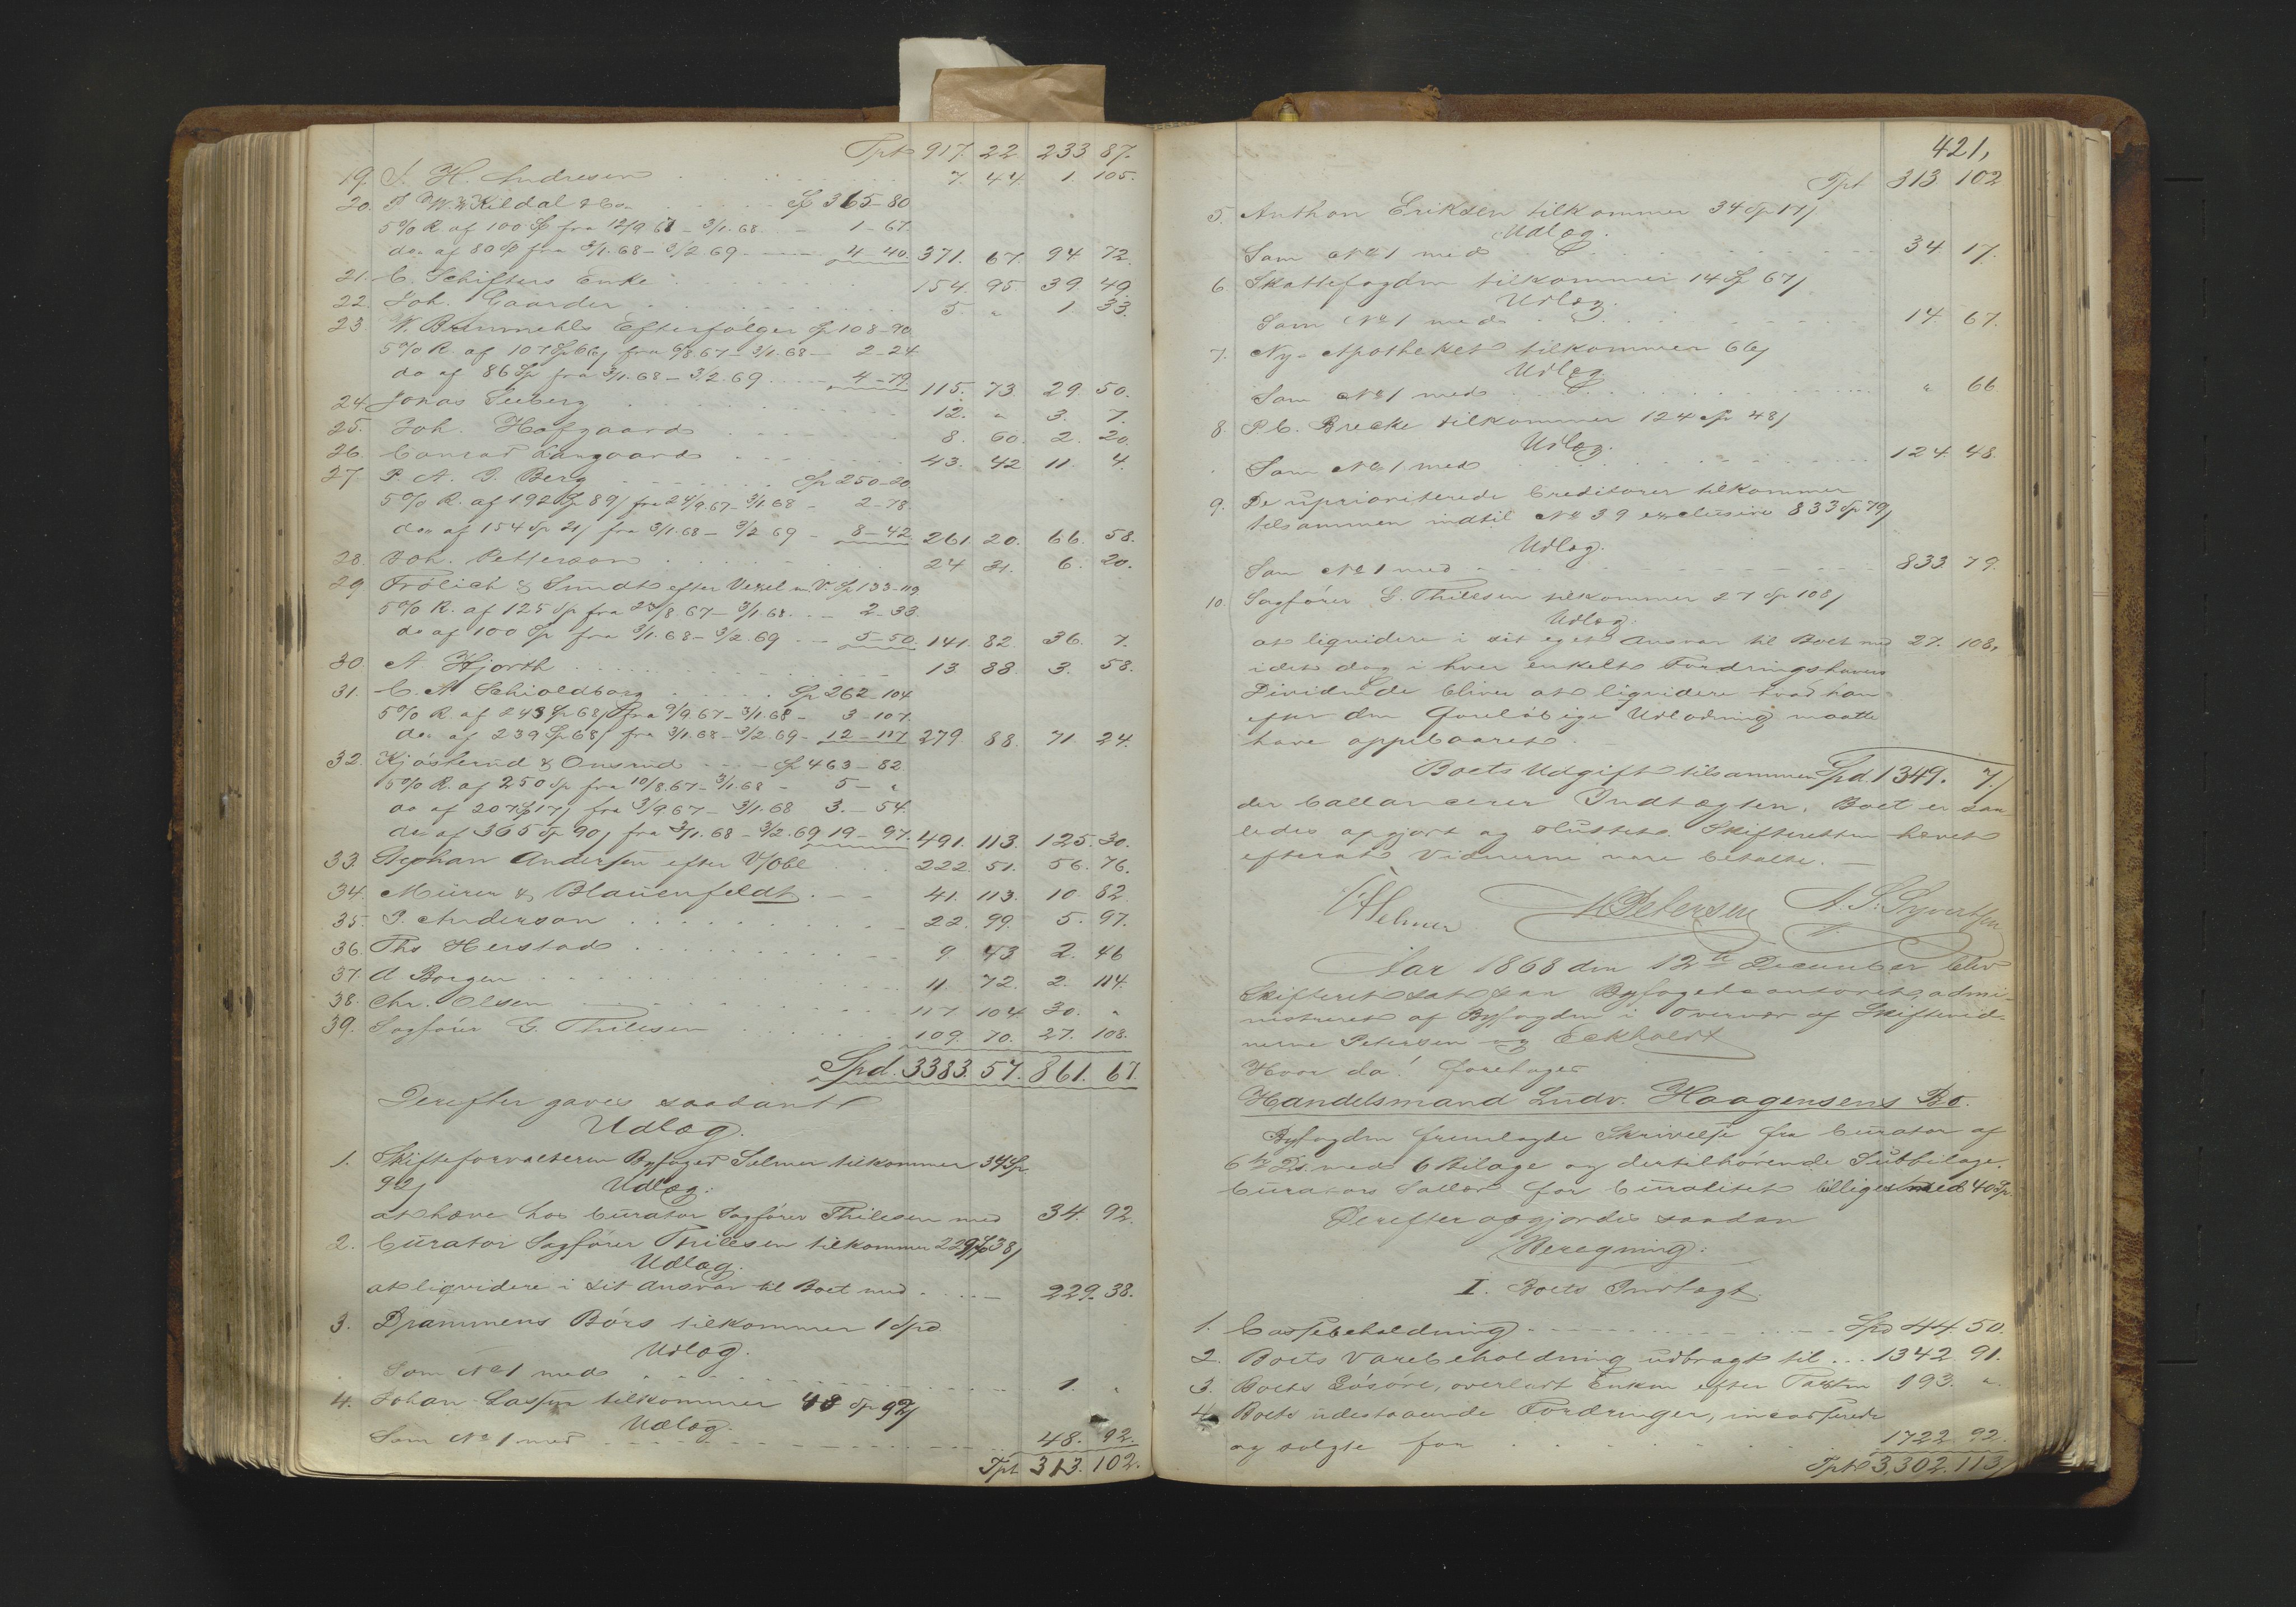 Tpt 917. 22 233 87.
19. S. H. Andresen 7. 44 1. 105.
20. P. W. W. Kildal & Co. Sp 365-80
5% R. af 100 Sp fra 12/9 67 - 3/1.68 - 1-67
do af 80 Sp fra 3/1.68 - 3/2 69 - 4-40. 371. 67. 94 72.
21. C. Schifters Enke 154. 95 39. 49.
22. Joh. Gaarder 5. " 1. 33.
23 W. Brummehls Efterfølger Sp 108-90
5% R. af 107 Sp 66/ fra 6/8.67 - 3/1.68 - 2-24
do af 86 Sp fra 3/1.68 - 3/2.69 - 4-79 115. 73. 29. 50.
24. Jonas Seeberg 12. " 3. 7.
25. Joh. Hofgaard 8. 60. 2. 20.
26. Conrad Langaard 43. 42 11. 4.
27 P. A. G. Berg Sp 250-20.
5% R. af 192 Sp 89/ fra 24/9.67 - 3/1.68 - 2-78.
do. af 154 Sp 21/ fra 3/1.68 - 3/2 69 - 8-42. 261. 20. 66. 58.
28. Joh. Petterson 24 21. 6. 20.
29 Frölich & Smidt efter Vexel m. V. Sp 133-119
5% R. af 125 Sp fra 23/8 67 - 3/1.68. - 2-33.
do af 100 Sp fra 3/1.68 - 3/2.69 - 5-50. 141. 82. 36. 7.
30. A. Hjorth 13. 88. 3. 58.
31. C. A. Schioldborg Sp 262-104
5% R. af 243 Sp 68/ fra 9/9.67 - 3/1.68 - 3-107.
do. af 239 Sp 68/ fra 3/1.68 - 3/2.69 - 12-117 279. 88. 71. 24.
32. Kjøsterud & Onsrud Sp 463-82.
5% R. af 250 Sp fra 10/8.67 - 3/1.68 - 5-"
do af 207 Sp 17/ fra 3/9.67 - 3/1.68 3.-54.
do. af 365 Sp 90/ fra 3/1.68 - 3/2.69 19-97. 491. 113. 125. 30.
33. Stephan Andersen efter V/Obl 222. 51. 56. 76.
34. Mürer & Blauenfeldt 41. 113. 10. 82.
35. P. Anderson 22. 99. 5. 97.
36. Ths Herstad 9 43 2. 46
37. A Borgen 11 72. 2. 114.
38. Chr. Olsen 117. 104 30. "
39. Sagfører G. Thilesen 109. 70. 27. 108.
Spd. 3383. 57. 861. 67.
Derefter gaves saadant
Udlæg.
1. Skifteforvalteren Byfoged Selmer tilkommer 34 Sp
92/ Udlæg:
at hæve hos Curator Sagfører Thilesen med 34. 92.
2. Curator Sagfører Thilesen tilkommer 229 Sp 38/
Udlæg.
at liqvidere i sit Ansvar til Boet med 229. 38.
3. Drammens Börs tilkommer 1 Spd.
Udlæg.
Som No 1 med 1. "
4. Johan Lassen tilkommer 48 Sp 92/
Udlæg.
Som No 1 med 48. 92.
Tpt 313. 102.
421,
Tpt 313 102
5. Anthon Eriksen tilkommer 34 Sp 17/
Udlæg.
Som No 1 med 34 17.
6. Skattefogden tilkommer 14 Sp 67/
Udlæg.
Som No 1 med 14. 67.
7. Ny-Apotheket tilkommer 66/
Udlæg.
Som No 1 med " 66
8. P. C. Brecke tilkommer 124 Sp 48/
Udlæg.
Som No 1 med 124. 48.
9. De uprioriterede Creditorer tilkommer
tilsammen indtil No 39 exclusive 833 Sp 79/
Udlæg.
Som No 1 med 833. 79.
10. Sagfører G. Thilesen tilkommer 27 Sp 108/
Udlæg.
at liqvidere i sit eget Ansvar til Boet med 27. 108.
idet dog i hver enkelt Fordringshavers
Dividende bliver at liqvidere hvad han
efter den foreløbige Udlodning maatte
have oppebaaret.
Boets Udgift tilsammen Spd. 1349. 7./
der ballancerer Indtægten. Boet er saa-
ledes opgjort og sluttet. Skifteretten hævet
efterat Vidnerne vare betalte. —
Selmer M Petersen A. S. Syvertsen
Aar 1868 den 12te December blev
Skifteret sat paa Byfogedcontoret, admi-
nistreret af Byfogden i Overvær af Skiftevid-
nerne Petersen og Eckholdt
Hvor da! foretoges
Handelsmand Ludv. Haagensens Bo.
Byfogden fremlagde Skrivelse fra Curator af
6te Ds. med 6 Bilage og dertilhørende Subbilage.
Curators Sallær for Curatelet billiges med 40 Sp.
Derefter opgjordes saadan
Beregning:
I. Boets Indtægt.
1. Cassebeholdning Spd 44. 50.
2. Boets Varebeholdning udbragt til 1342 91.
3. Boets Løsøre, overladt Enken efter Taxten 193. "
4. Boets udestaaende Fordringer, incasserede
og solgte for 1722. 92.
Tpt 3,302. 113/